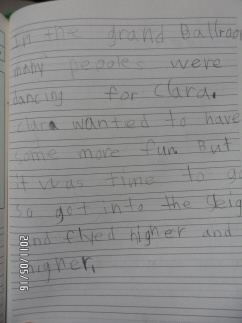 In the grand Ballroo
many peoples were
dancing for Clara.
Clara wanted to have
some more fun. But
it was time to go
so got into the Sleig
and flyed higher and
higher.
2011/05/16